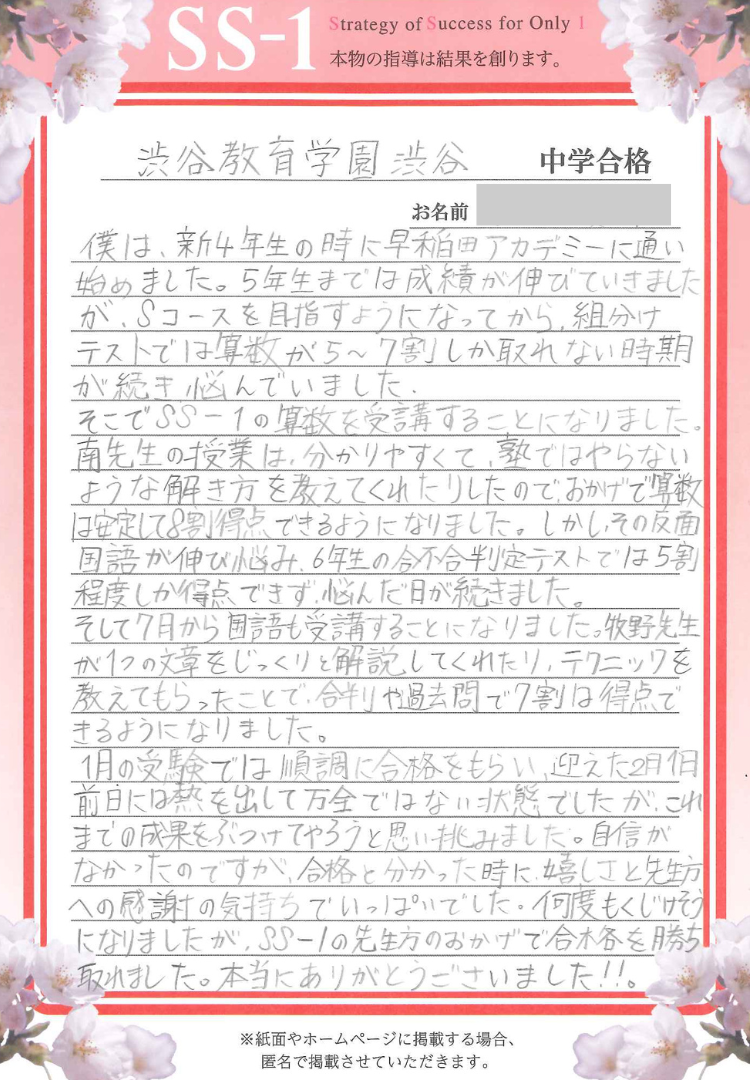 SS-1
Strategy of Success for Only 1
本物の指導は結果を創ります。
渋谷教育学園渋谷 中学合格
お名前
僕は、新4年生の時に早稲田アカデミーに通い
始めました。5年生までは成績が伸びていきました
が、Sコースを目指すようになってから、組分け
テストでは算数が5~7割しか取れない時期
が続き悩んでいました.
そこでSS-1の算数を受講することになりました。
南先生の授業は、分かりやすくて、塾ではやらない
ような解き方を教えてくれたりしたので、おかげで算数
は安定して8割得点できるようになりました。しかし、その反面
国語が伸び悩み、6年生の合不合判定テストでは5割
程度しか得点できず、悩んだ日が続きました。
そして7月から国語も受講することになりました。牧野先生
が1つの文章をじっくりと解説してくれたり、テクニックを
教えてもらったことで、合判や過去問で7割は得点で
きるようになりました。
1月の受験では順調に合格をもらい、迎えた2月1日
前日には熱を出して万全ではない状態でしたが、これ
までの成果をぶつけてやろうと思い挑みました。自信が
なかったのですが、合格と分かった時に、嬉しさと先生方
への感謝の気持ちでいっぱいでした。何度もくじけそう
になりましたが、SS-1の先生方のおかげで合格を勝ち
取れました。本当にありがとうございました!!。
※紙面やホームページに掲載する場合、
匿名で掲載させていただきます。